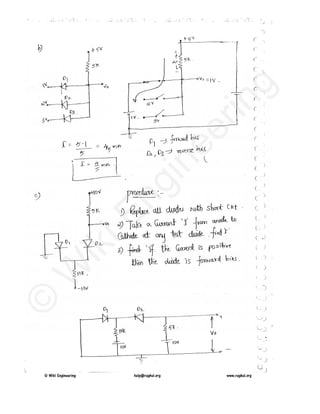 b)
+5V
5K
D1
D2
D3
Vo
+5V
5K
Vo = 1V
1V
5V
I = 5-1 / 5 = 4/5 mA
D1 → forward bias
D2, D3 → reverse bias
c)
+10V
5K
D1 D2
10K
-10V
procedure :-
1) Replace all diodes with short ckt.
2) Take a current 'I' from anode to
cathode at any test diode find I
3) find 'If the current is positive
then the diode is forward bias.
D1 D2
10K
5K
10V
10V
+
Vo
-
© Wiki Engineering
help@raghul.org
www.raghul.org
© Wiki Engineering